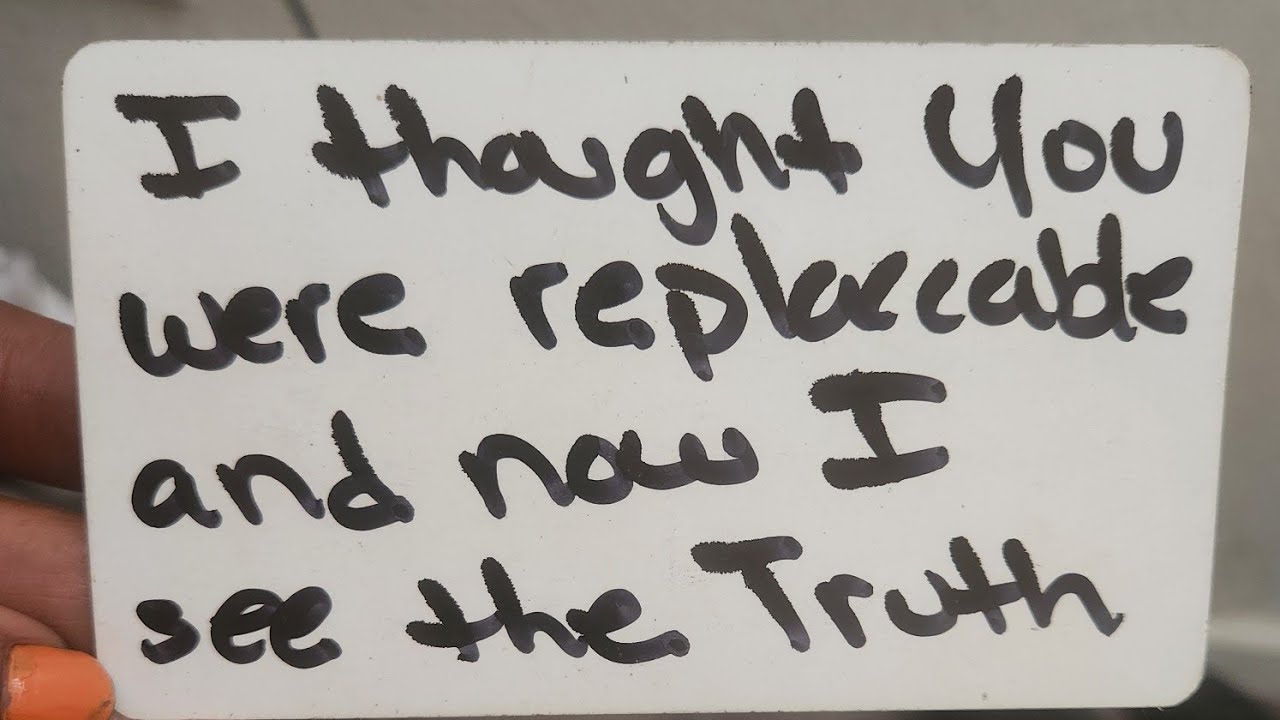 I thought You
were replaceable
and now I
see the Truth